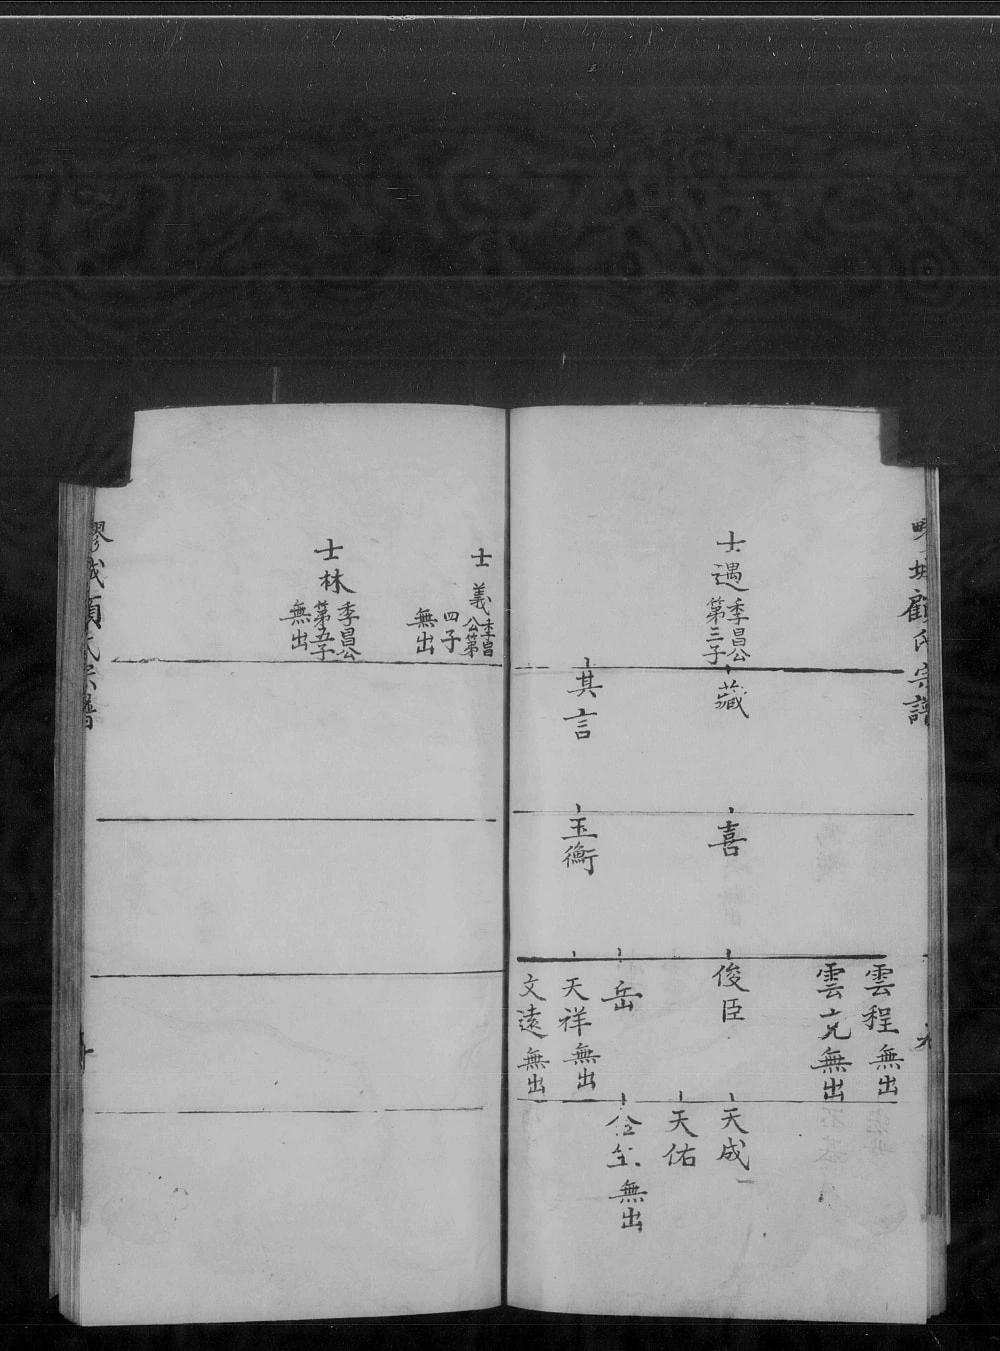 城顧氏宗譜
士遇 季昌公第三子
藏
其言
喜
玉衡
雲程 無出
雲亢 無出
俊臣
岳
天祥 無出
文遠 無出
天成
天佑
無出
士義 季昌公第四子 無出
士林 季昌公第五子 無出